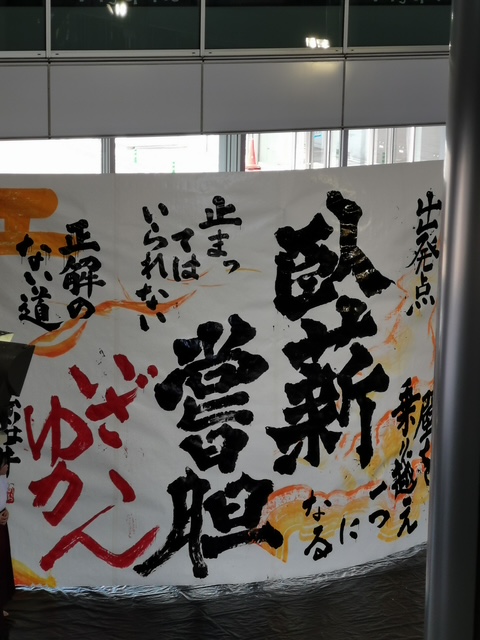 出発点
乗り越え
一つ
に
なる
臥薪
嘗胆
止まっ
ては
いられない
正解の
ない道
いざ
ゆかん